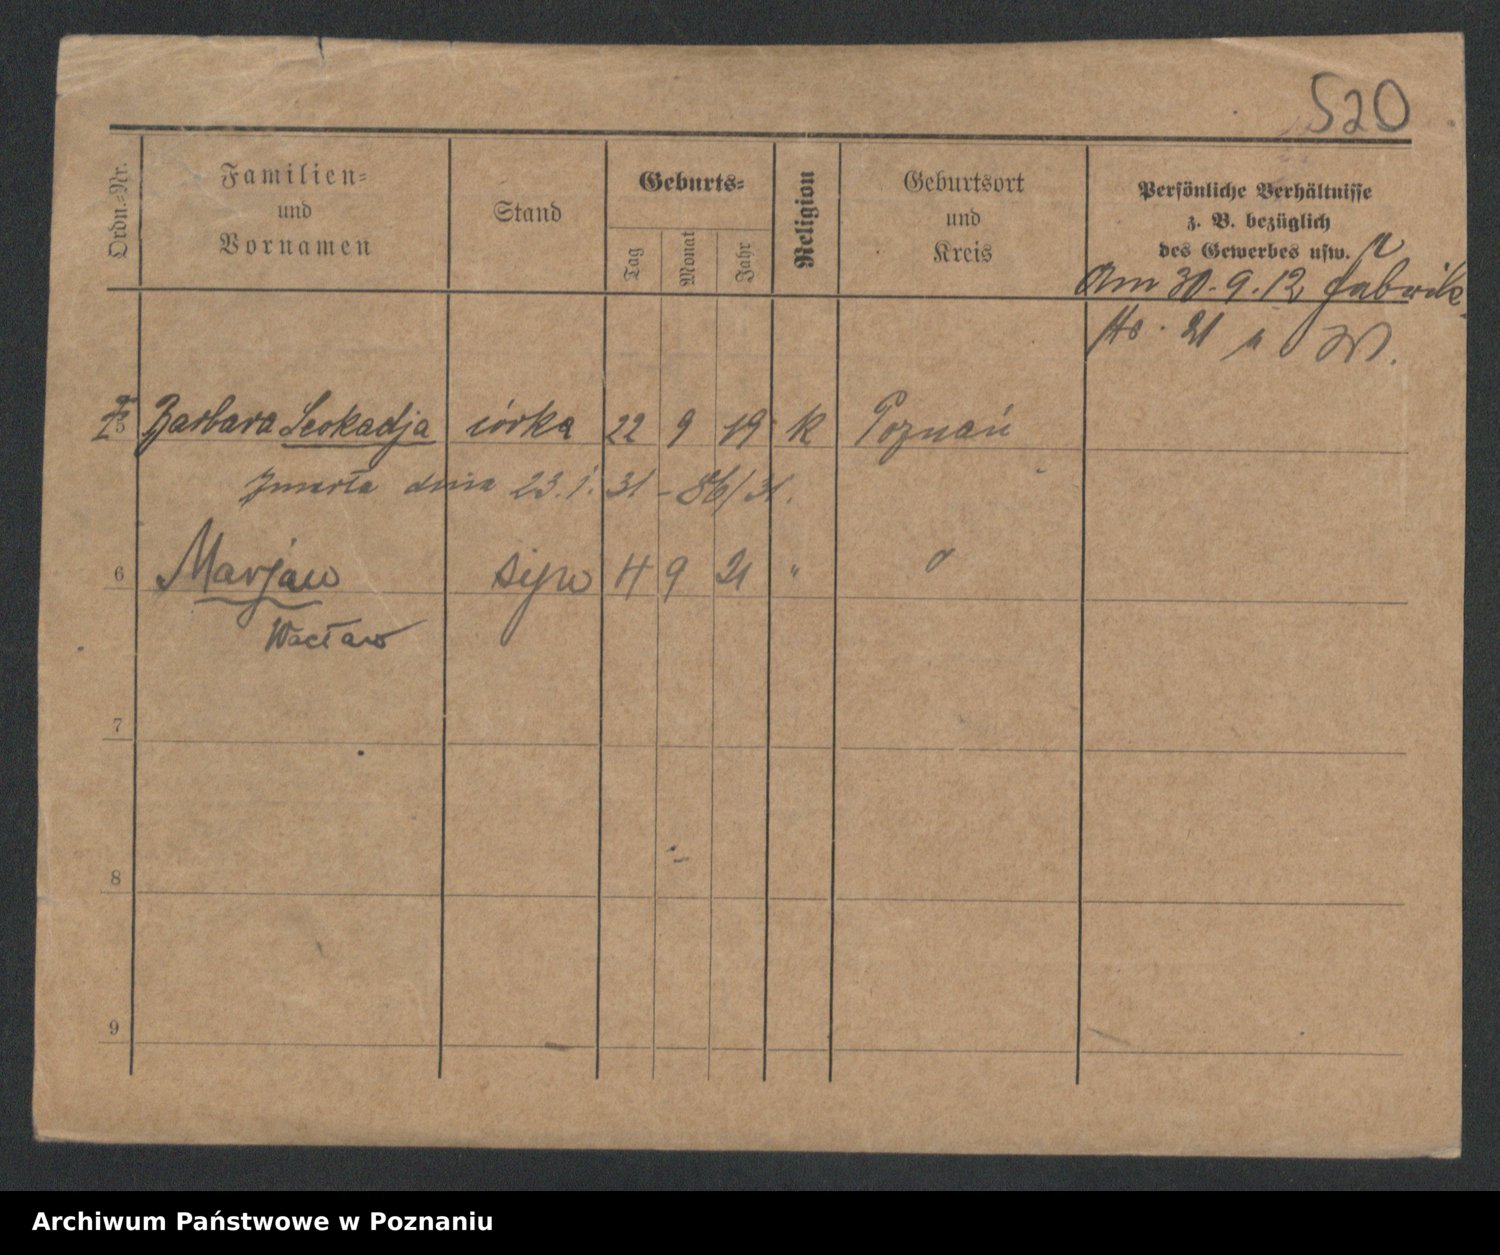 520
Ordn.-Nr.
Familien- und Vornamen
Stand
Geburts-
Tag
Monat
Jahr
Religion
Geburtsort und Kreis
Persönliche Verhältnisse z. B. bezüglich des Gewerbes usw.
Am 30.9.12 Fabrik
5 Barbara Leokadja córka 22 9 19 k Poznań
zmarła dnia 23.1.31 – 86/31.
6 Marjan syn 4 9 21 "
Wacław
7
8
9
Archiwum Państwowe w Poznaniu